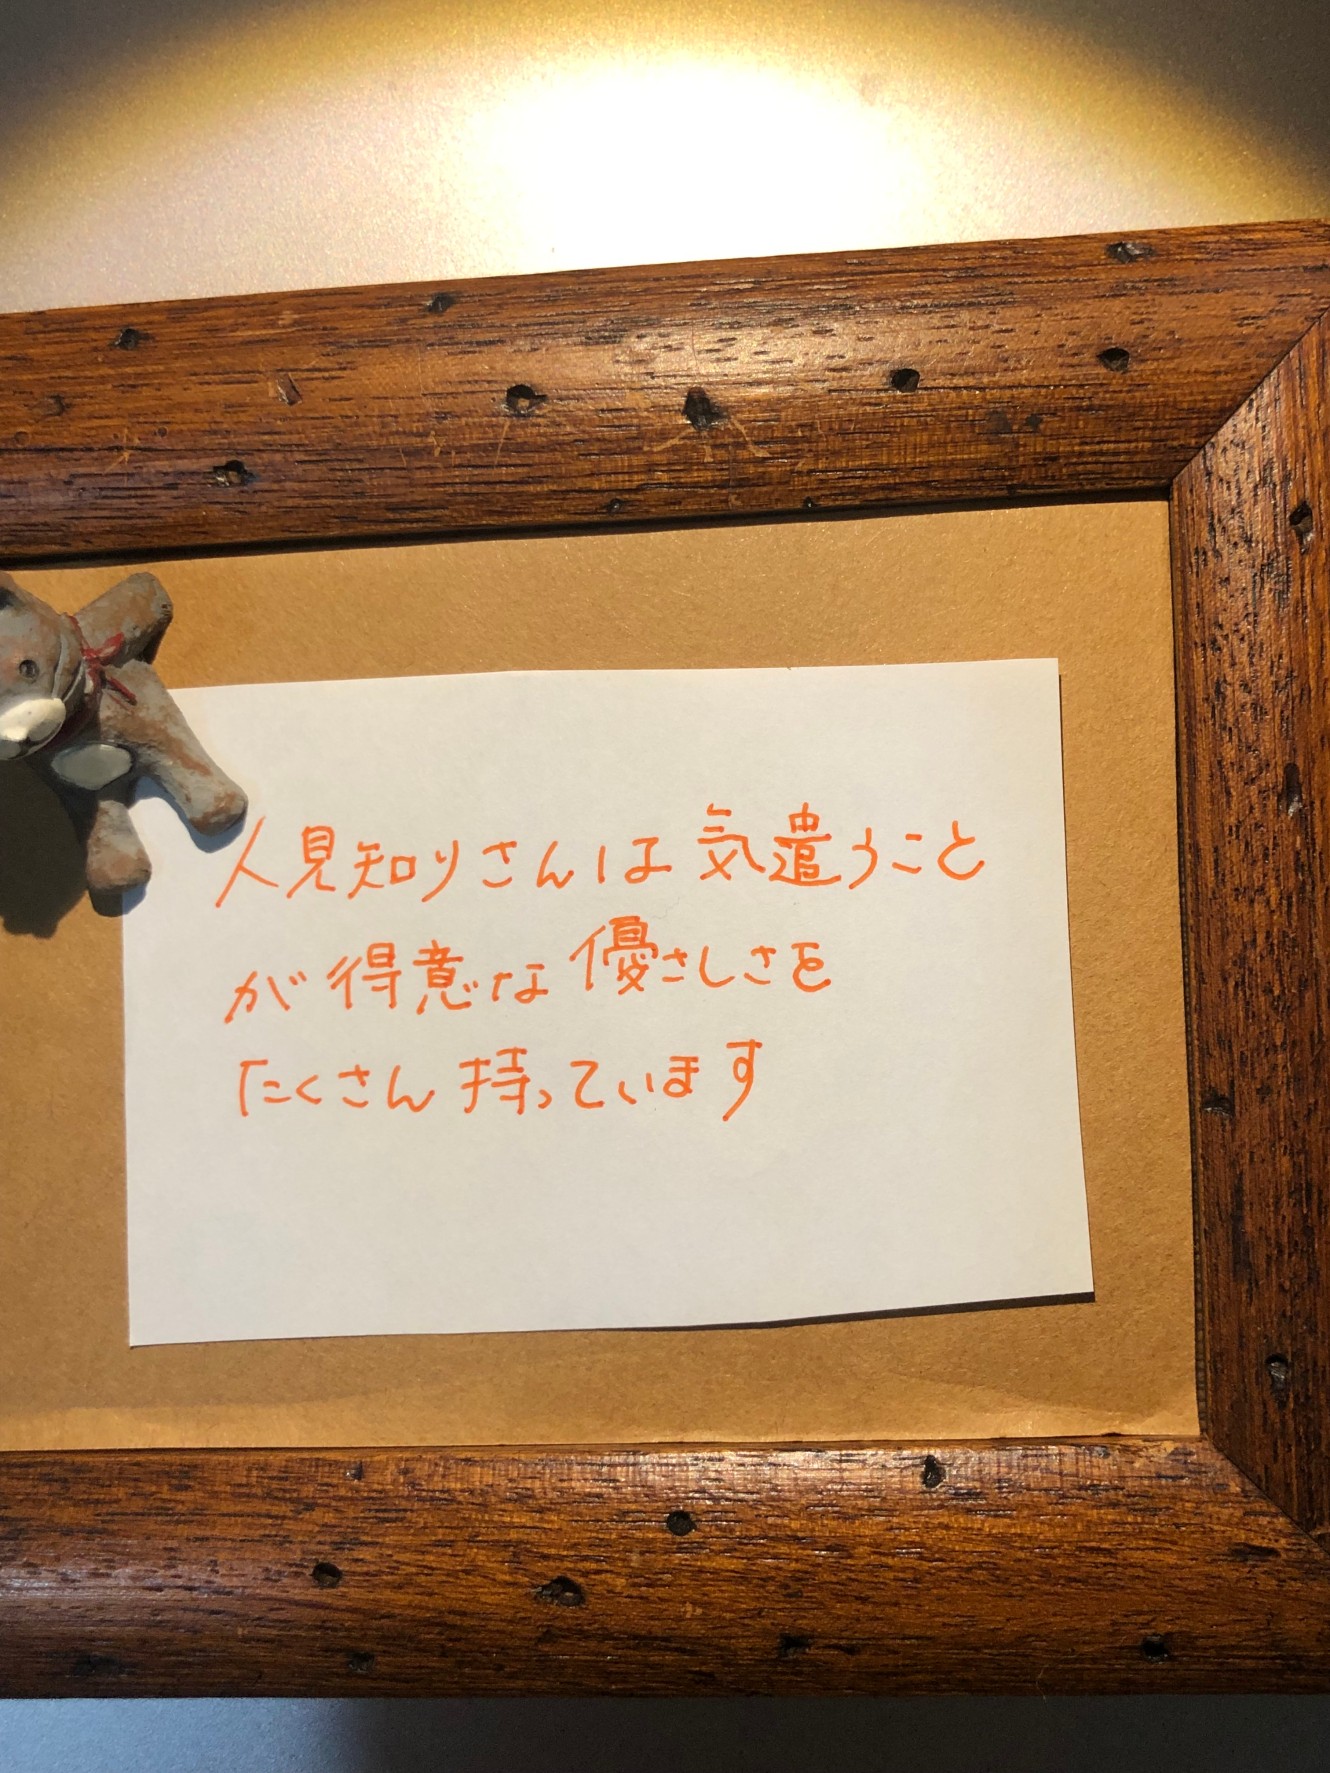 人見知りさんは気遣うこと
が得意な優さしさを
たくさん持っています